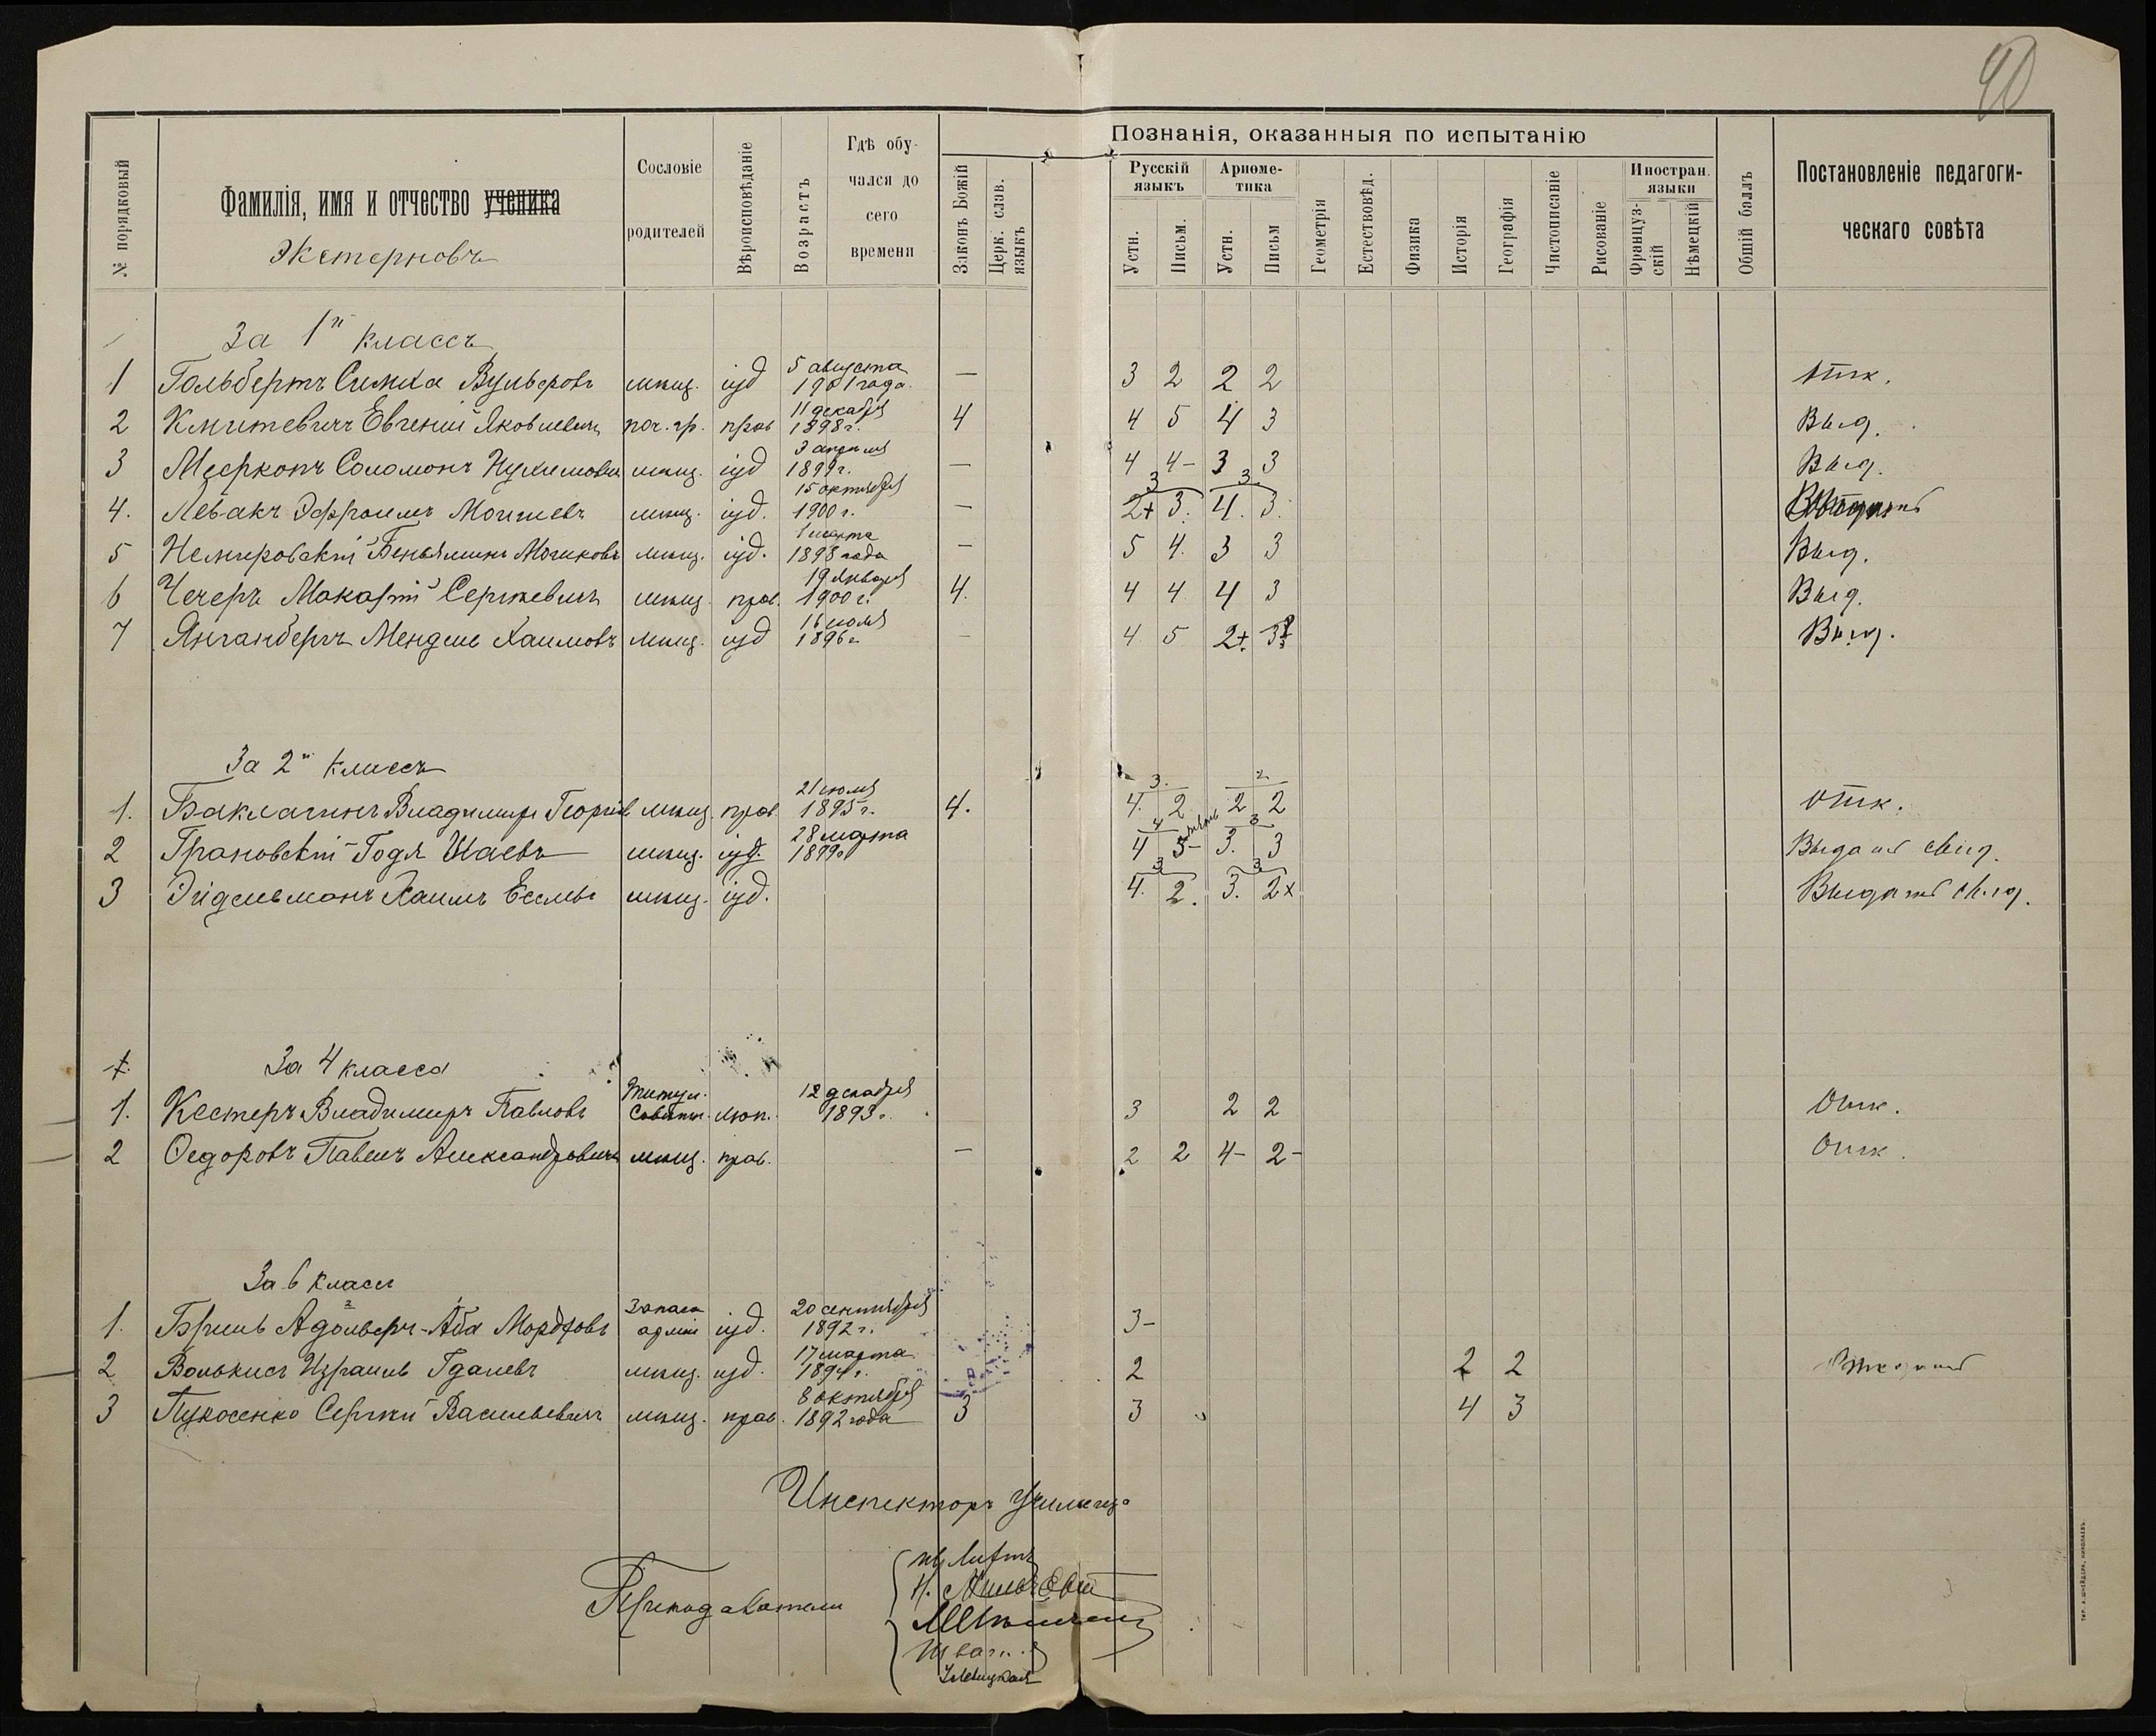 40
№ порядковый
Фамилія, имя и отчество ученика
Экстерновъ
Сословіе родителей
Вѣроисповѣданіе
Возрастъ
Гдѣ обучался до сего времени
Познанія, оказанныя по испытанію
Законъ Божій
Церк. слав. языкъ
Русскій языкъ
Устн.
Письм.
Ариѳметика
Устн.
Письм
Геометрія
Естествовѣд.
Физика
Исторія
Географія
Чистописаніе
Рисованіе
Иностран. языки
Французскій
Нѣмецкій
Общій баллъ
Постановленіе педагогическаго совѣта
За 1й классъ
1 Гольбертъ Симха Вульфовъ мѣщ. іуд 5 августа 1901 года. — 3 2 2 2 Отк.
2 Кмитевичъ Евгеній Яковлевичъ поч. гр. прав 11 декабря 1898 г. 4 4 5 4 3 Выд.
3 Мееркопъ Соломонъ Нухимовъ мѣщ. іуд 3 апрѣля 1899 г. — 4 4- 3 3 Выд.
4. Левакъ Эфроимъ Мошкевъ мѣщ. іуд. 15 октября 1900 г. — 3 2+ 3. 3. 4. 3.
5 Немировскій Беньяминъ мѣщ. іуд. 1 марта 1898 года — 5 4. 3 3 Выд.
6 Чечеръ Макарій Сергѣевичъ мѣщ. прав. 19 января 1900 г. 4. 4 4 4 3 Выд.
7 Янганбергъ Мендель Хаимовъ мѣщ. іуд 16 іюля 1896 г. — 4 5 2+ Выд.
За 2й классъ
1. Баклагинъ Владимиръ Георгіев мѣщ. прав 21 іюля 1895 г. 4. 3. 4. 2 2 2 2 Отк.
2 Грановскій Годл Шаевъ мѣщ. іуд. 28 марта 1899 4 4 3- 3 3. 3 Выдать свид.
3 Эйдельманъ Хаимъ мѣщ. іуд. 3 4. 2. 3 3. 2x Выдать свид.
За 4 класса
1. Кестеръ Владимиръ Павловъ Титул. Совѣтн. лют. 12 декабря 1893 г. 3 2 2 Отк.
2 Ѳедоровъ Павелъ Александровичъ мѣщ. прав. — 2 2 4- 2- Отк.
За 6 классъ
1. Бриль Адольфъ-Аба Мордковъ Запаса арміи іуд. 20 сентября 1892 г. 3-
2 Волькисъ Израиль Гдалевъ мѣщ. іуд. 17 марта 1894 г. 2 2 2
3 Пукосенко Сергѣй Васильевичъ мѣщ. прав. 8 октября 1892 года 3 3 4 3
Инспекторъ училища
Преподаватели
Тип. А. Шнейдера, Николаевъ.